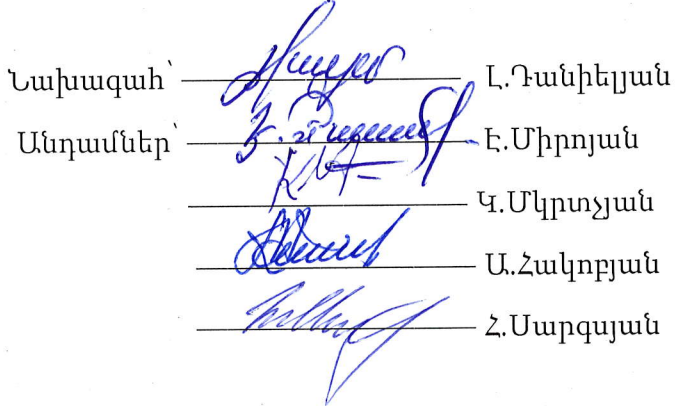 Նախագահ՝ Լ.Դանիելյան
Անդամներ՝ Է.Միրոյան
Կ.Մկրտչյան
Ա.Հակոբյան
Հ.Սարգսյան